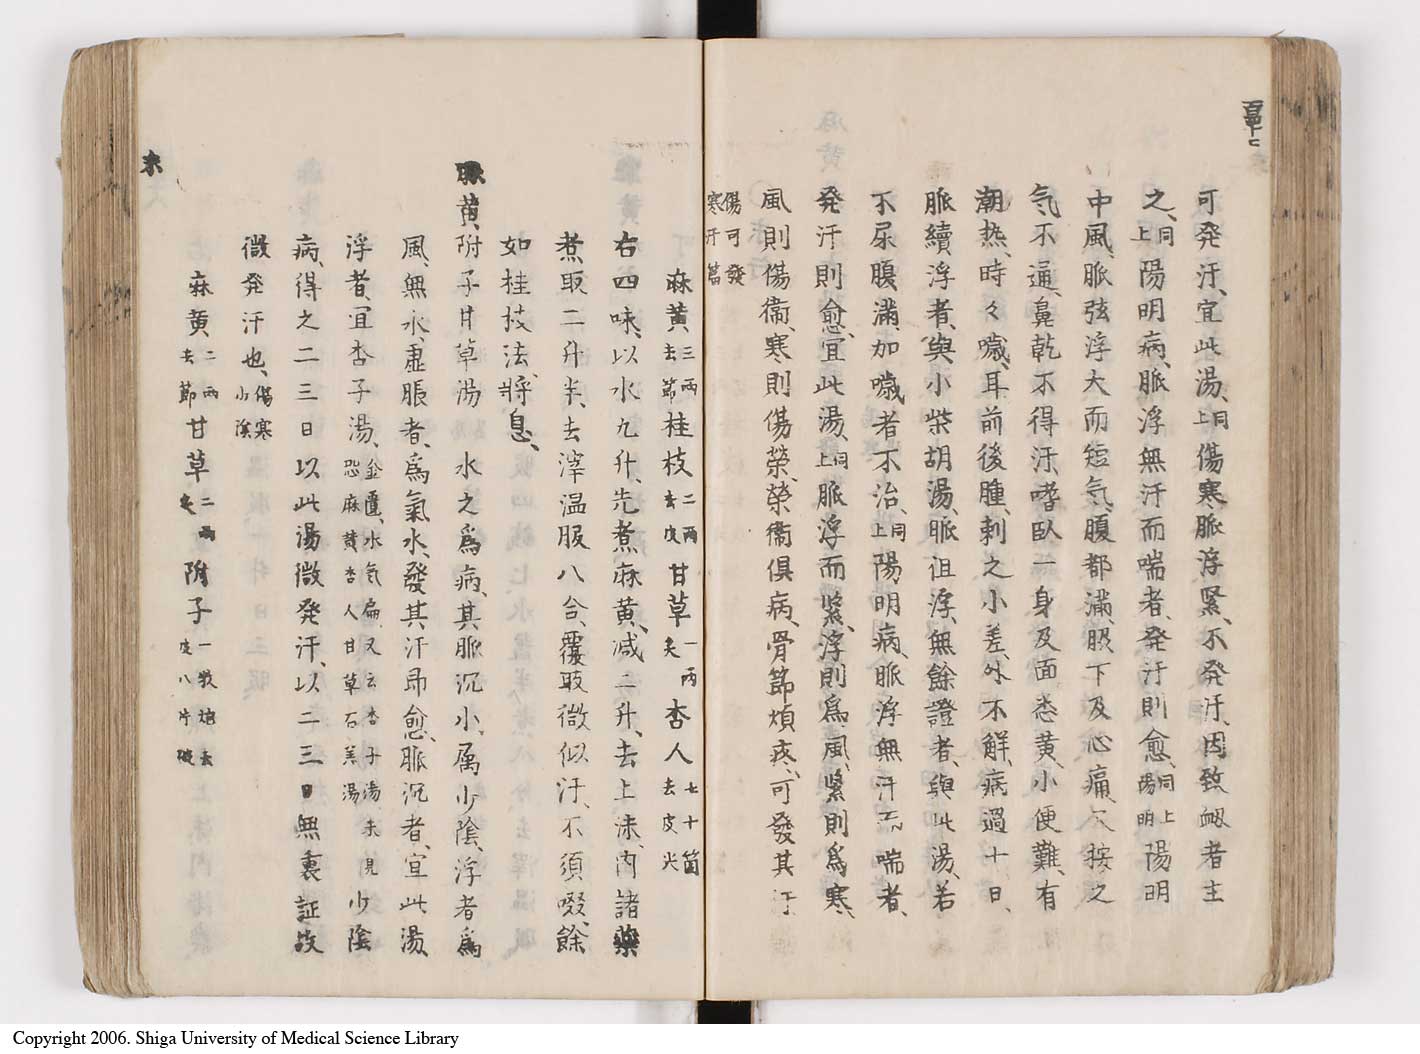 可発汗、宜此湯、同上傷寒脈浮緊、不発汗、因致衂者主
之、同上陽明病、脈浮無汗而喘者、発汗則愈、同上陽明陽明
中風、脈弦浮大而短気、腹都滿、脇下及心痛、久按之
気不通、鼻乾不得汗、嗜臥、一身及面悉黄、小便難、有
潮熱、時々噦、耳前後腫、刺之小差、外不解、病過十日、
脈續浮者、與小柴胡湯、脈但浮、無餘證者、與此湯、若
不尿、腹滿、加噦者不治、同上陽明病、脈浮無汗而喘者、
発汗則愈、宜此湯、同上脈浮而緊、浮則為風、緊則為寒、
風則傷衞、寒則傷榮、榮衞俱病、骨節煩疼、可發其汗
傷寒可發汗篇
麻黄三兩去節桂枝二兩去皮甘草一兩炙杏人七十箇去皮尖
右四味、以水九升、先煮麻黄、減二升、去上沫、内諸藥
煮取二升半、去滓温服八合、覆取微似汗、不須啜、餘
如桂枝法、將息、
麻黄附子甘草湯 水之為病、其脈沉小、属少陰、浮者為
風、無水、虚脹者、為氣水、發其汗即愈、脈沉者、宜此湯、
浮者、宜杏子湯、金匱、水気扁、又云杏子湯、未見恐麻黄杏人甘草石羔湯少陰
病、得之二三日、以此湯微発汗、以二三日無裏証故
微発汗也、傷寒少陰
麻黄二兩去節甘草二兩炙附子一枚炮去皮八片破